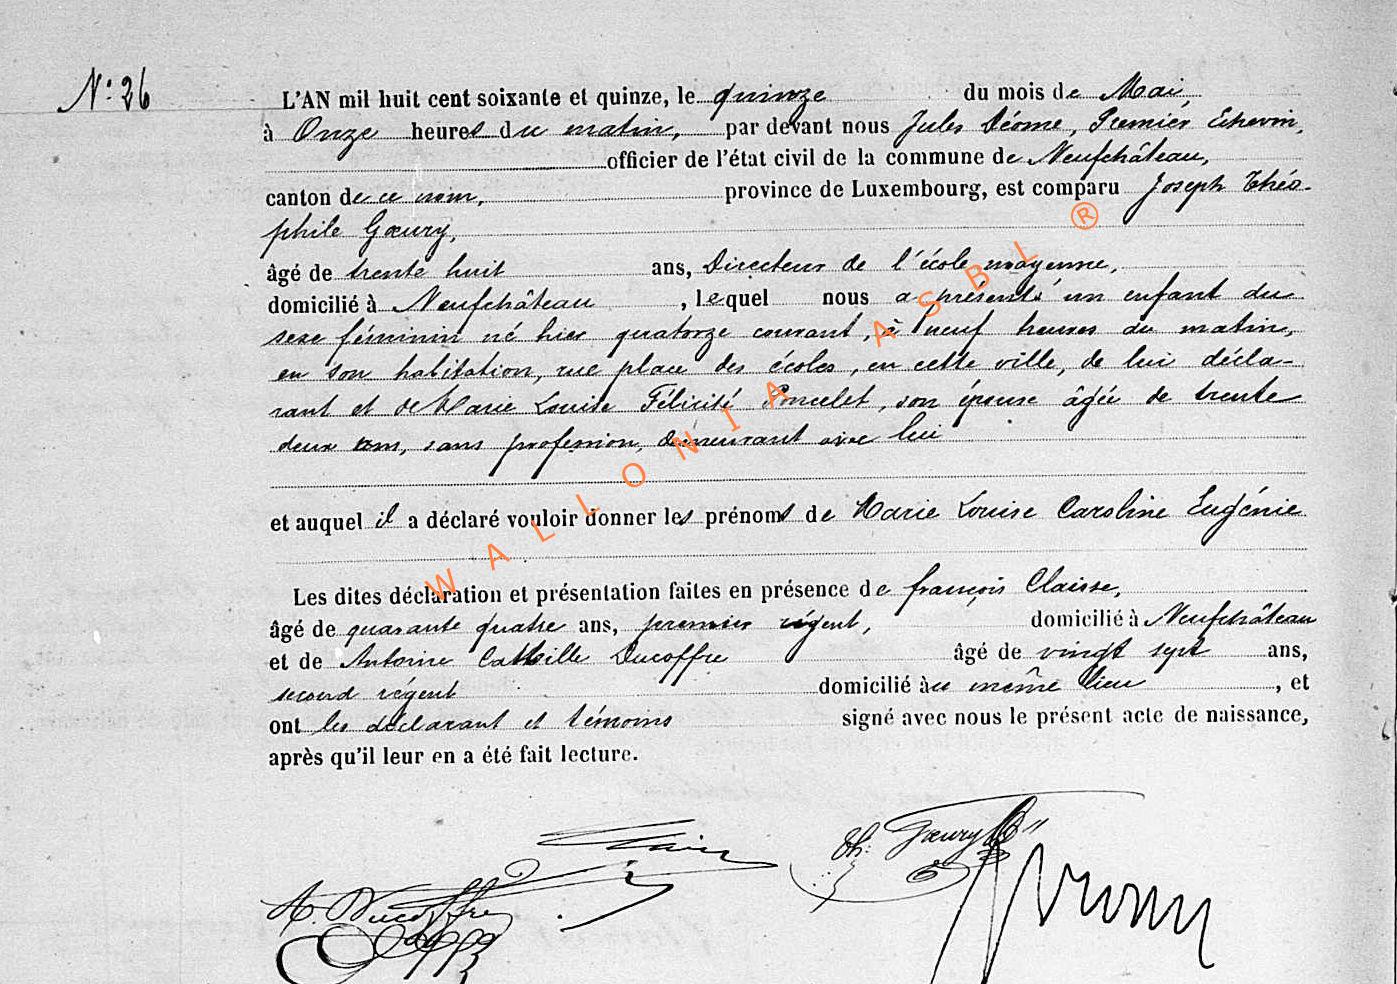 N° 26
L'AN mil huit cent soixante et quinze, le quinze du mois de Mai,
à Onze heures du matin, par devant nous Jules Déome, Premier Echevin,
officier de l'état civil de la commune de Neufchâteau,
canton de ce nom, province de Luxembourg, est comparu Joseph Théo-
phile Gœury,
âgé de trente huit ans, Directeur de l'école moyenne,
domicilié à Neufchâteau, lequel nous a présenté un enfant du
sexe féminin né hier quatorze courant, à neuf heures du matin,
en son habitation, rue place des écoles, en cette ville, de lui décla-
rant et de Marie Louise Félicité Poncelet, son épouse âgée de trente
deux ans, sans profession, demeurant avec lui
et auquel il a déclaré vouloir donner les prénoms de Marie Louise Caroline Eugénie
Les dites déclaration et présentation faites en présence de françois Claisse,
âgé de quarante quatre ans, premier régent, domicilié à Neufchâteau
et de Antoine Camille Ducoffre âgé de vingt sept ans,
second régent domicilié au même lieu, et
ont les déclarant et témoins signé avec nous le présent acte de naissance,
après qu'il leur en a été fait lecture.
Th: Gœury
A. Ducoffre
WALLONIA ASBL ®